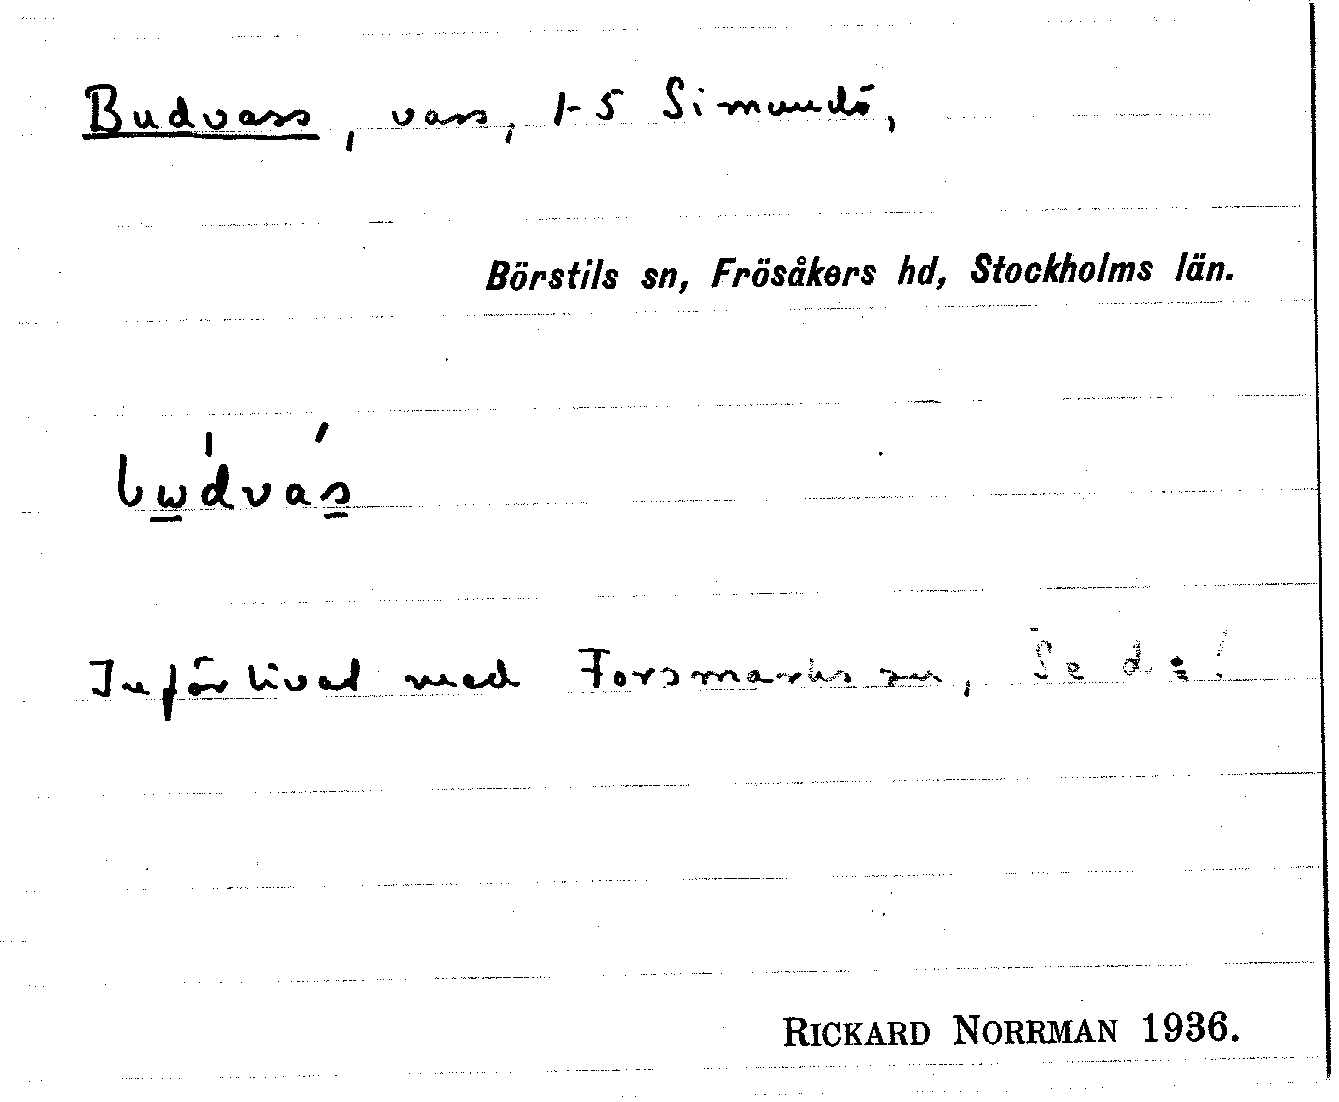 Budvass, vass, 1-5 Simundö,
Börstils sn, Frösåkers hd, Stockholms län.
bu̲dvas̲
Införlivat med Forsmarks sn, Se d:o!
RICKARD NORRMAN 1936.